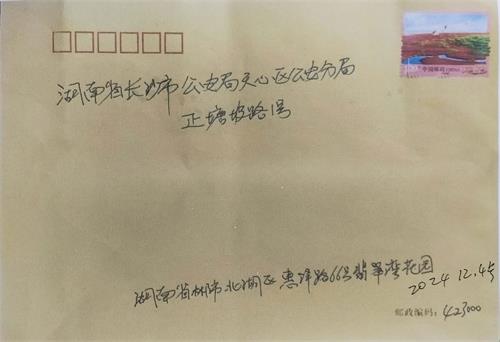 中国邮政 CHINA
湖南省长沙市公安局天心区公安分局
正塘坡路1号
湖南省郴州市北湖区惠泽路66号翡翠湾花园
2024.12.45
邮政编码：423000